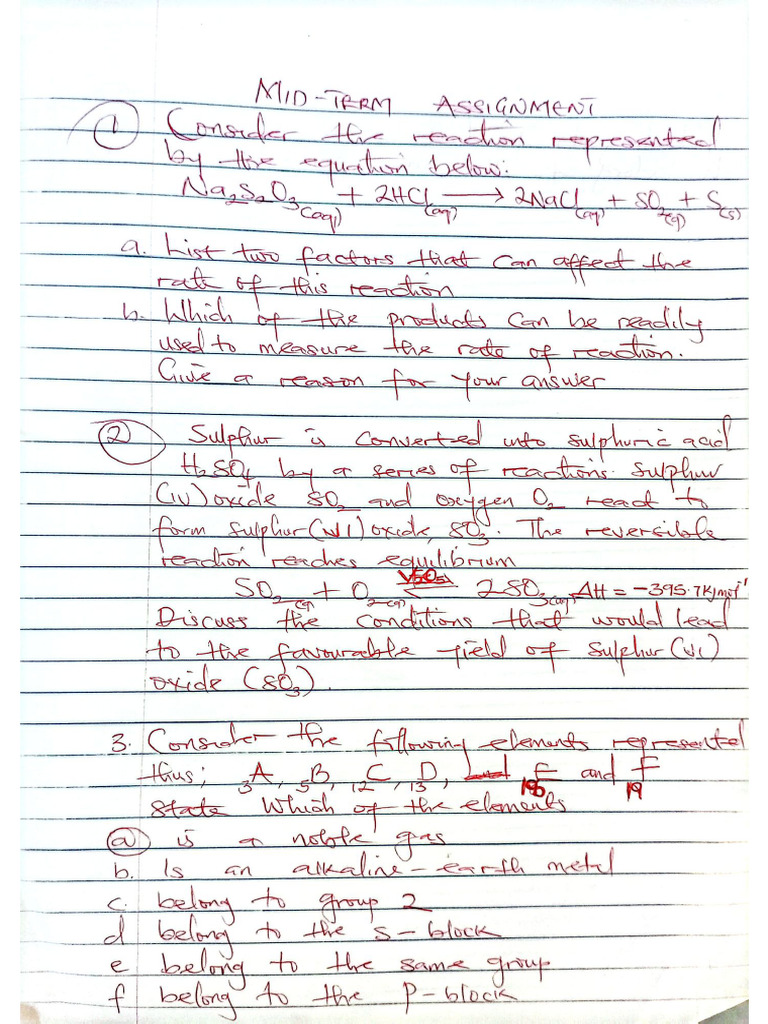 MID-TERM ASSIGNMENT
① Consider the reaction represented
by the equation below:
Na₂S₂O₃(aq) + 2HCl(aq) → 2NaCl(aq) + SO₂(g) + S(s)
a. List two factors that can affect the
rate of this reaction
b. Which of the products can be readily
used to measure the rate of reaction.
Give a reason for your answer
② Sulphur is converted into sulphuric acid
H₂SO₄ by a series of reactions. Sulphur
(iv) oxide SO₂ and oxygen O₂ react to
form sulphur (vi) oxide, SO₃. The reversible
reaction reaches equilibrium
SO₂(g) + O₂(g) ⇌ 2SO₃(g) ΔH = -395.7kJmol⁻¹
Discuss the conditions that would lead
to the favourable yield of sulphur (vi)
oxide (SO₃).
3. Consider the following elements represented
thus; ₃A, ₅B, ₁₂C, ₁₃D, E and ₁₉F
State which of the elements
ⓐ is a noble gas
b. Is an alkaline-earth metal
c. belong to group 2
d belong to the s-block
e belong to the same group
f belong to the p-block